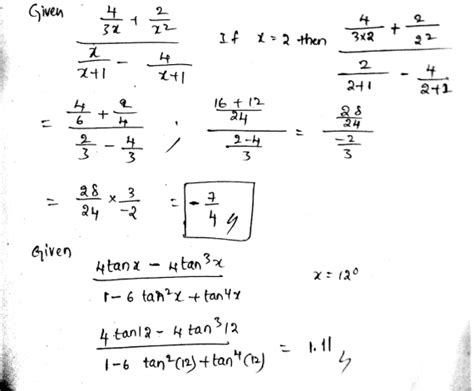 Given (4/3x + 2/x²) / (x/x+1 − 4/x+1) If x = 2 then (4/3×2 + 2/2²) / (2/2+1 − 4/2+1)
= (4/6 + 2/4) / (2/3 − 4/3) ; (16+12/24) / (2−4/3) = (28/24) / (−2/3)
= 28/24 × 3/−2 = −7/4
Given
4tanx − 4tan³x / 1−6 tan²x + tan4x x = 12°
4 tan12 − 4 tan³12 / 1−6 tan²(12)+tan⁴(12) = 1.11